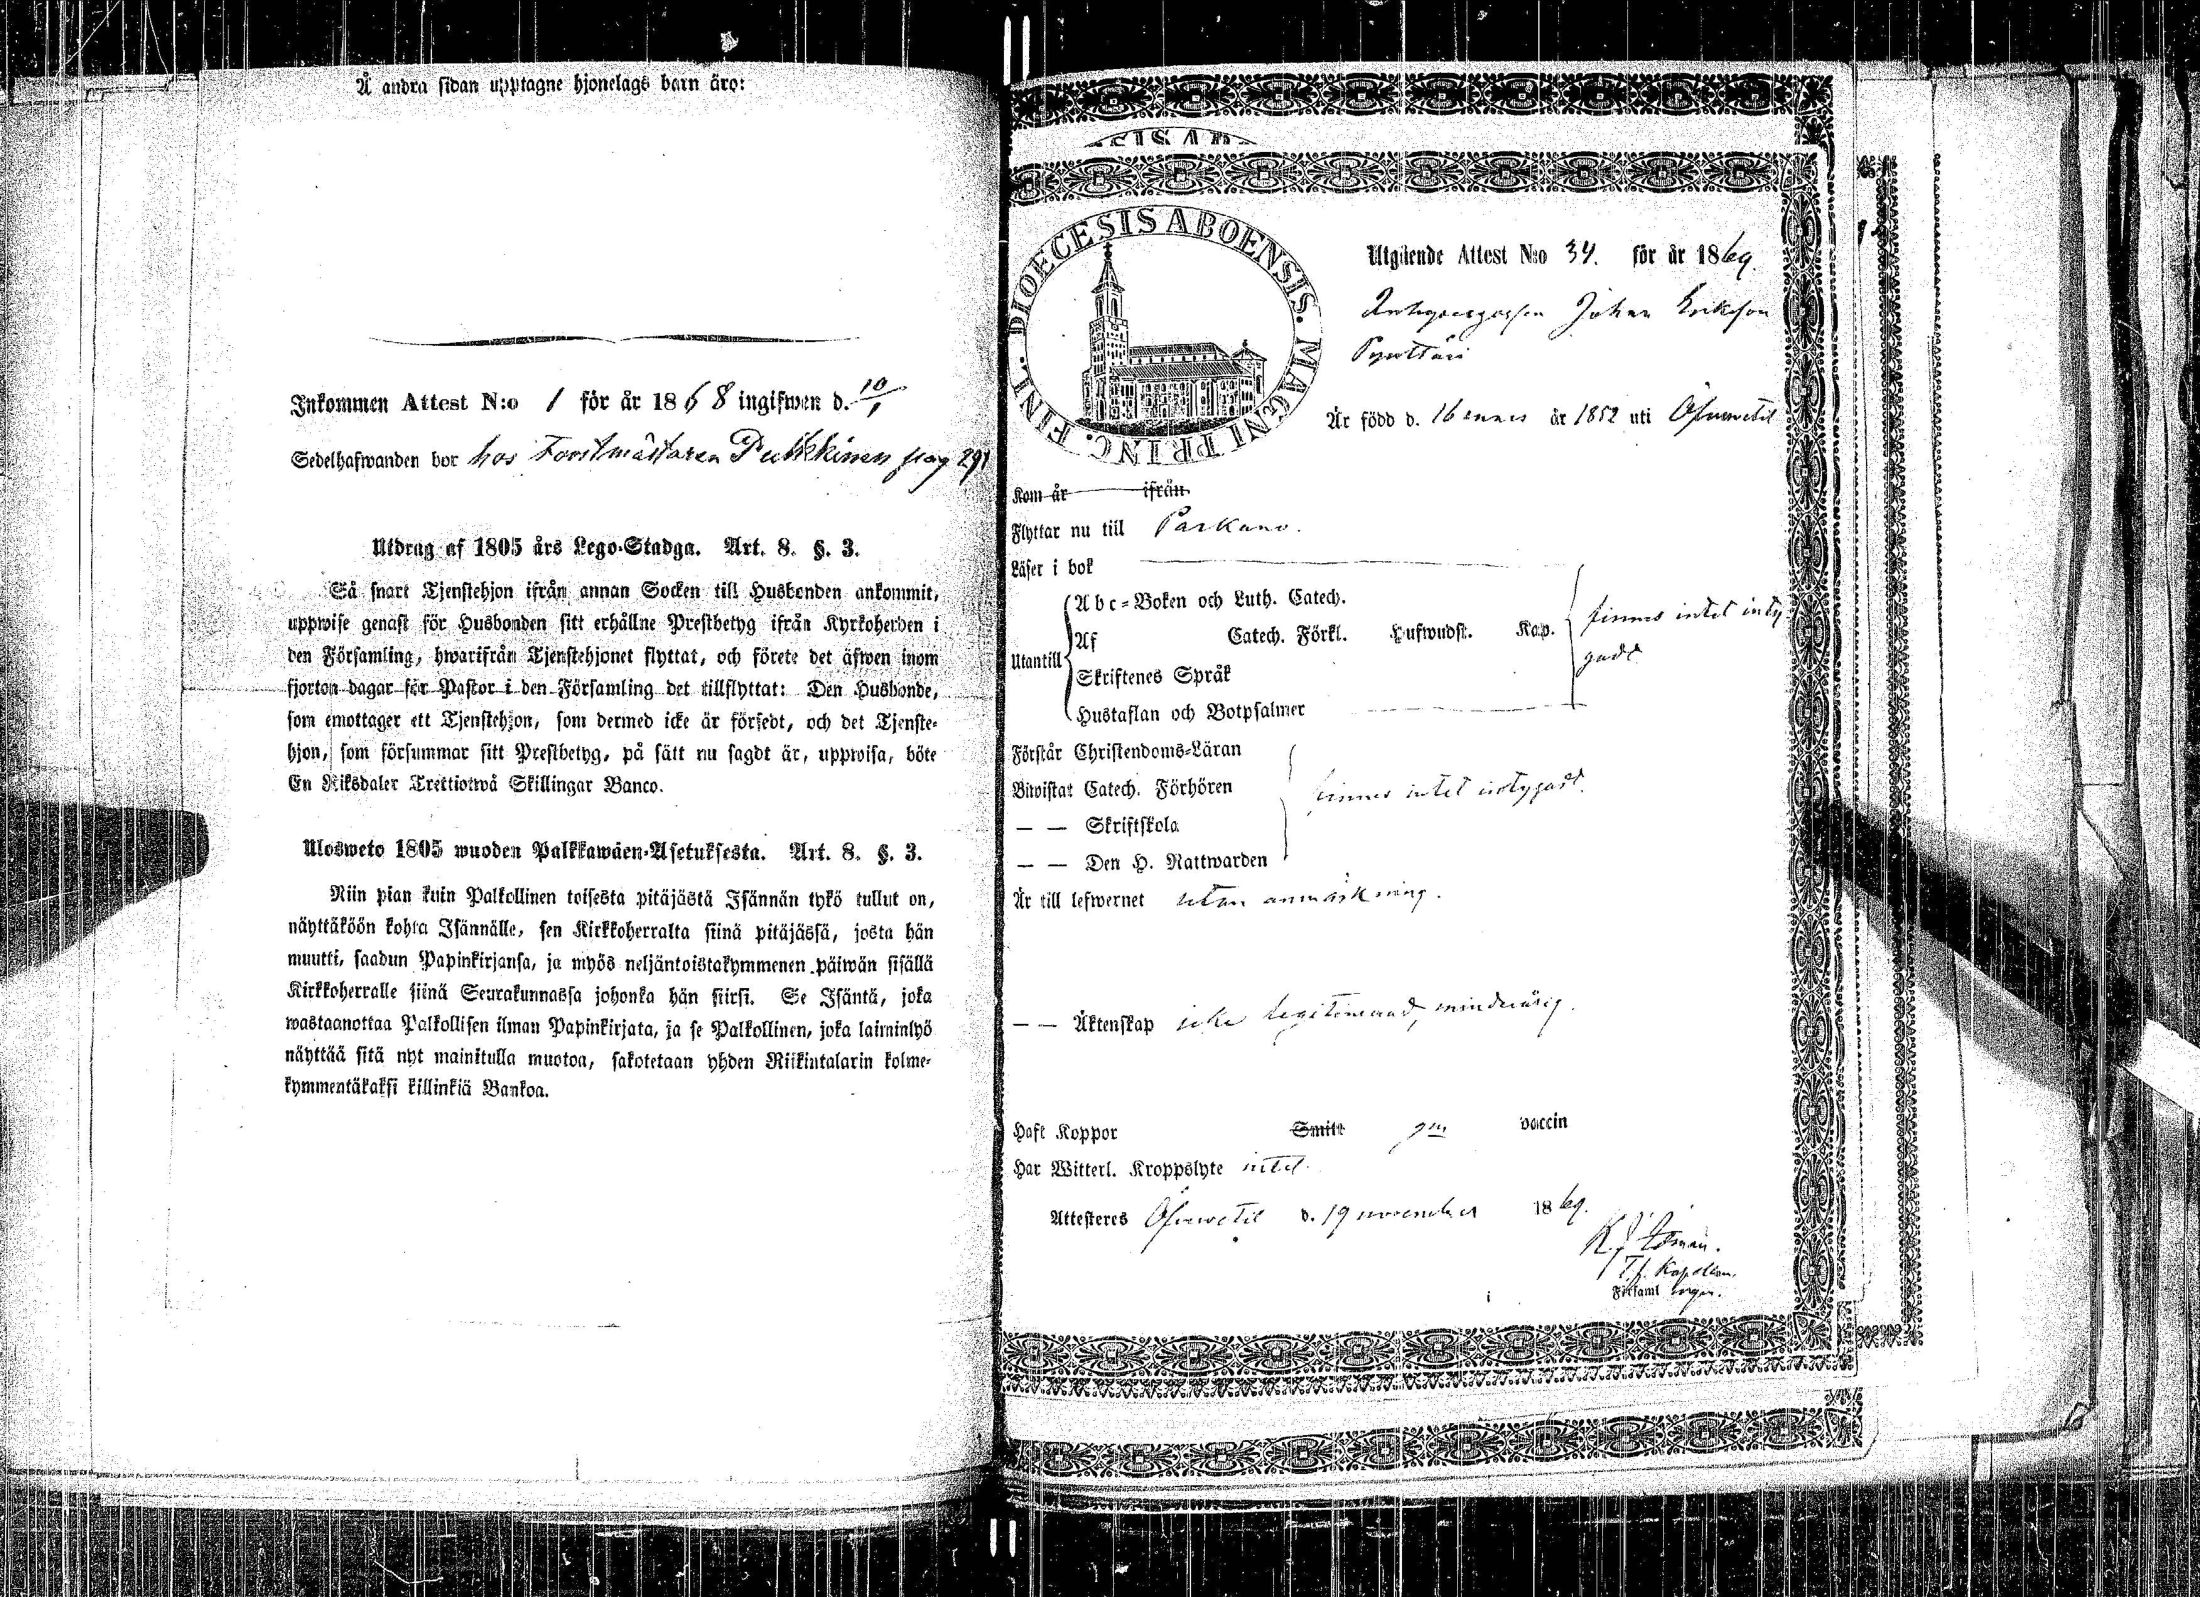 Å andra sidan upptagne hjonelags barn äro:
Inkommen Attest N:o 1 för år 1868 ingifwen d. 10/1
Sedelhafwanden bor hos Forstmästaren Pulkkinen pag 291
Utdrag af 1805 års Lego-Stadga. Art. 8. §. 3.
Så snart Tjenstehjon ifrån annan Socken till Husbonden ankommit,
uppwise genast för Husbonden sitt erhållne Prestbetyg ifrån Kyrkoherden i
den Församling, hwarifrån Tjenstehjonet flyttat, och förete det äfwen inom
fjorton dagar för Pastor i den Församling det tillflyttat: Den Husbonde,
som emottager ett Tjenstehjon, som dermed icke är försedt, och det Tjenste-
hjon, som försummar sitt Prestbetyg, på sätt nu sagdt är, uppwisa, böte
En Riksdaler Trettiotwå Skillingar Banco.
Ulosweto 1805 wuoden Palkkawäen-Asetuksesta. Art. 8. §. 3.
Niin pian kuin Palkollinen toisesta pitäjästä Isännän tykö tullut on,
näyttäköön kohta Isännälle, sen Kirkkoherralta siinä pitäjässä, josta hän
muutti, saadun Papinkirjansa, ja myös neljäntoistakymmenen päiwän sisällä
Kirkkoherralle siinä Seurakunnassa johonka hän siirsi. Se Isäntä, joka
wastaanottaa Palkollisen ilman Papinkirjata, ja se Palkollinen, joka laiminlyö
näyttää sitä nyt mainitulla muotoa, sakotetaan yhden Riikintalarin kolme-
kymmentäkaksi killinkiä Bankoa.
DIOECESIS ABOENSIS. MAGNI PRINC. FINL.
Utgående Attest N:o 34. för år 1869.
Johan Eriksson
Är född d. 16 mars år 1852 uti Öfwerwetil
Kom år ifrån
Flyttar nu till Parkano.
Läser i bok
Utantill
Abc-Boken och Luth. Catech.
Af Catech. Förkl. Hufwudst. Kap.
finnes intet inty
gadt
Skriftenes Språk
Hustaflan och Botpsalmer
Förstår Christendoms-Läran
Biwistat Catech. Förhören
finnes intet intygadt.
— — Skriftskola
— — Den H. Nattwarden
Är till lefwernet utan anmärkning.
— — Äktenskap icke legitimerad, minderårig.
Haft Koppor Smitt gm vaccin
Har Witterl. Kroppslyte intet.
Attesteres Öfwerwetil d. 19 november 1869.
T.f. Kapellan.
Församl